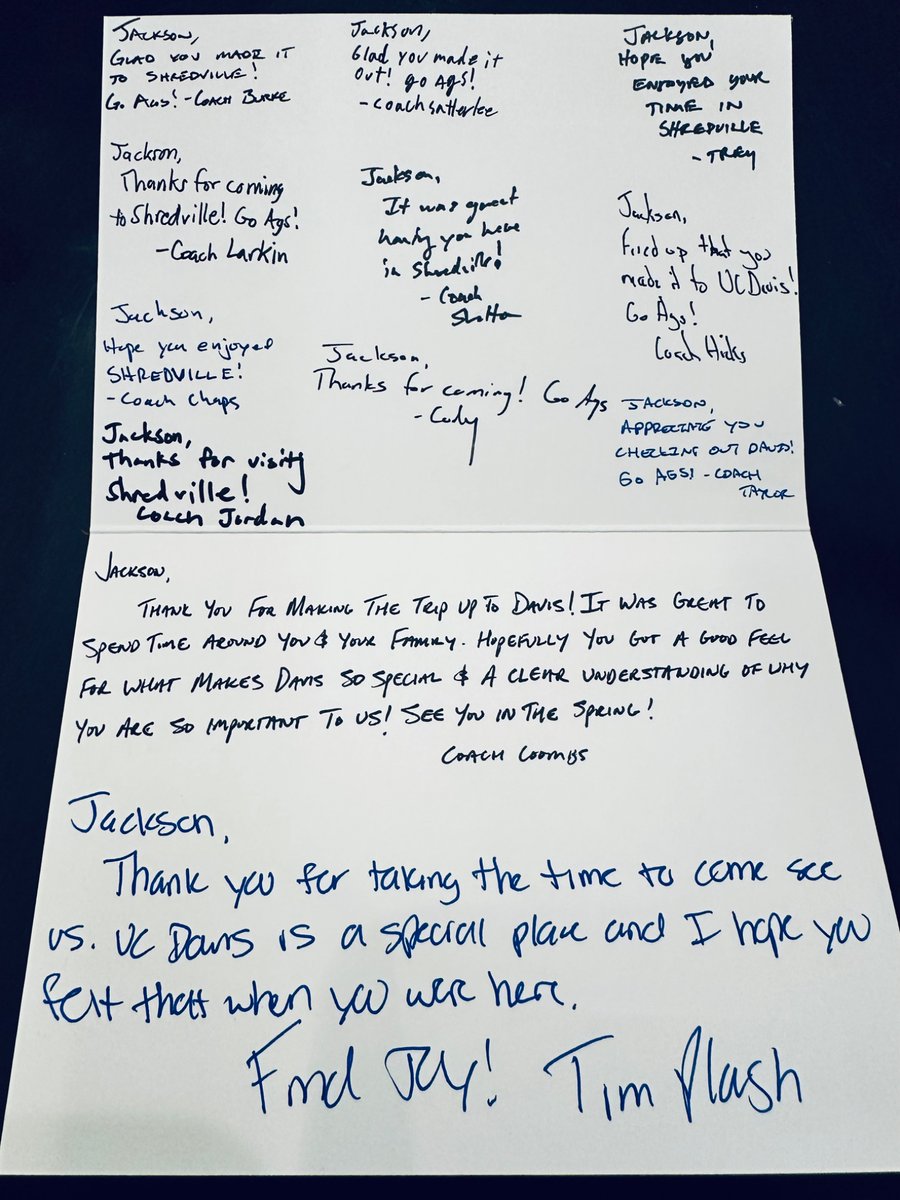 JACKSON,
GLAD YOU MADE IT
TO SHREDVILLE!
GO AGS! - COACH BURKE
Jackson,
Glad you made it
out! go Ags!
- Coach Satterlee
JACKSON,
HOPE YOU
ENJOYED YOUR
TIME IN
SHREDVILLE
- TREY
Jackson,
Thanks for coming
to Shredville! Go Ags!
- Coach Larkin
Jackson,
It was great
having you here
in Shredville!
- Coach
Jackson,
fired up that you
made it to UC Davis!
Go Ags!
Coach Hicks
Jackson,
Hope you enjoyed
SHREDVILLE!
- Coach Chaps
Jackson,
Thanks for coming! Go Ags
- Cody
JACKSON,
APPRECIATE YOU
CHECKING OUT DAVIS!
GO AGS! - COACH
TAYLOR
Jackson,
Thanks for visiting
Shredville!
Coach Jordan
JACKSON,
THANK YOU FOR MAKING THE TRIP UP TO DAVIS! IT WAS GREAT TO
SPEND TIME AROUND YOU & YOUR FAMILY. HOPEFULLY YOU GOT A GOOD FEEL
FOR WHAT MAKES DAVIS SO SPECIAL & A CLEAR UNDERSTANDING OF WHY
YOU ARE SO IMPORTANT TO US! SEE YOU IN THE SPRING!
COACH COOMBS
Jackson,
Thank you for taking the time to come see
us. UC Davis is a special place and I hope you
felt that when you were here.
Find Joy! Tim Plough